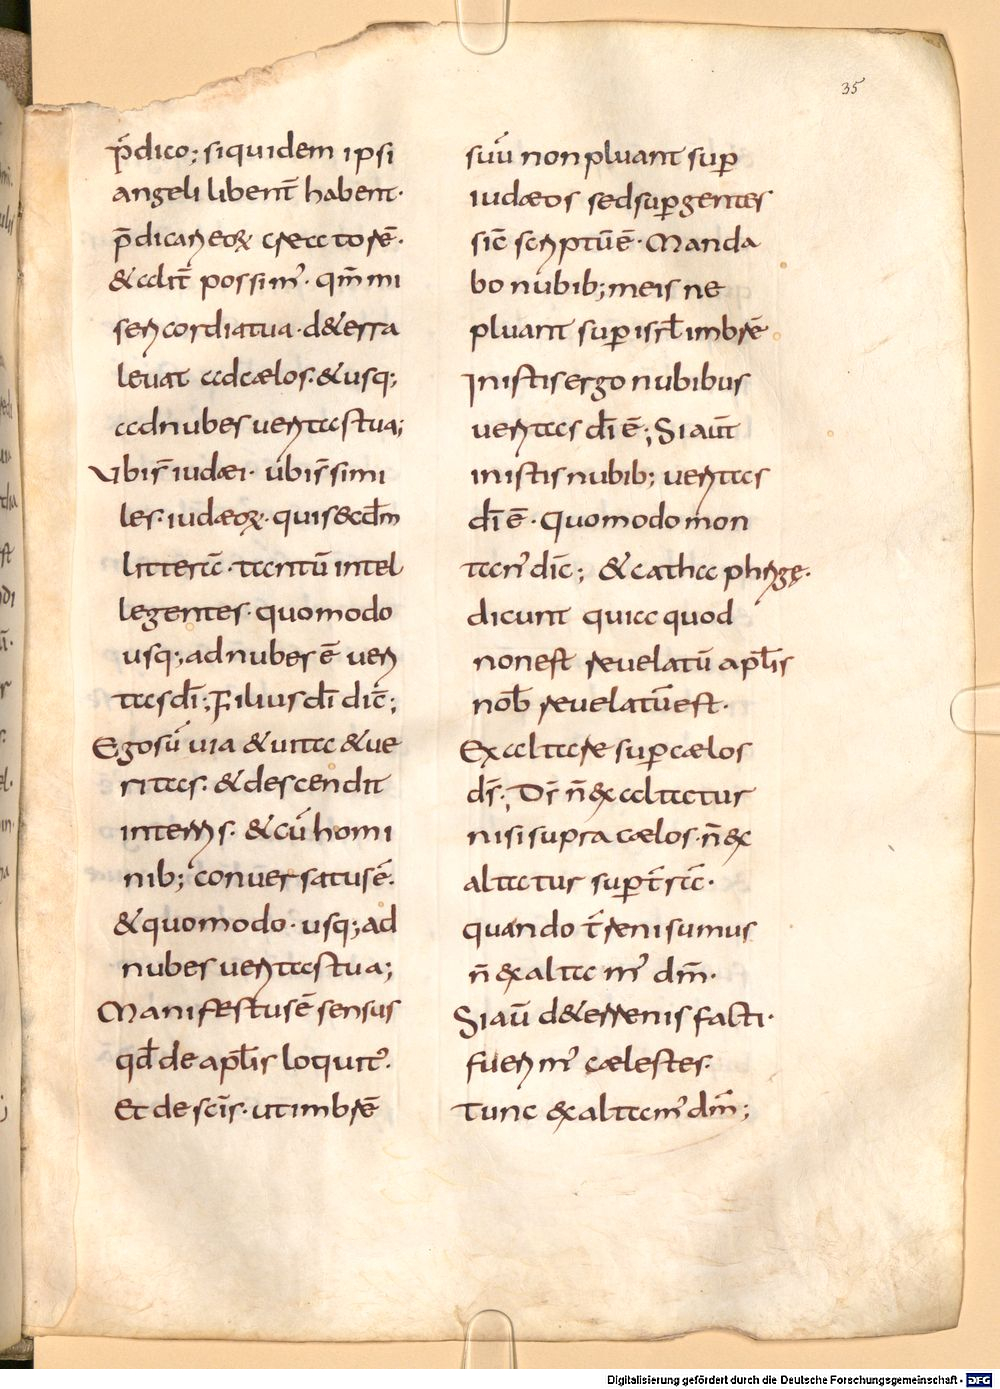 35
p̄dico; siquidem ipsi
angeli libent̄ habent·
p̄dicarı eoꝝ creatorē·
& adit̄ possim̉· qm̄ mi
sericordia tua· d& erra
leuat ad cælos· & usq;
ad nubes ueritas tua;
Vbi s̄ iudæi· ubi s̄ simi
les· iudæoꝝ· qui s&cdm̄
litterā· tantū intel
legentes· quomodo
usq; ad nubes ē ueri
tas dī; Filius dī dic̄;
Ego sū uia & uita & ue
ritas· & descendit
in terris· & cū homi
nib; conuersatus ē·
& quomodo· usq; ad
nubes ueritas tua;
Manifestus ē sensus
qd̄ de apl̄is loquit̉·
Et de sc̄is· ut imbrē
suū non pluant suꝑ
iudæos sed suꝑ gentes
sic̄ scriptū ē· Manda
bo nubib; meis ne
pluant suꝑ isrl̄ imbrē
In istis ergo nubibus
ueritas dī ē; Si aut̄
in istis nubib; ueritas
dī ē· Quomodo mon
tan̉ dic̄; & cathaphrigę·
dicunt quia quod
non est reuelatū apl̄is
nob̄ reuelatū est·
Exaltare suꝑ cælos
ds̄; Ds̄ n̄ exaltatur
nisi supra cælos· n̄ ex
altatur suꝑ t̄rā·
quando t̄reni sumus
n̄ exaltam̉ dm̄·
Si aū d& errenis facti·
fuerim̉ cælestes·
Tunc exaltam̉ dm̄;
Digitalisierung gefördert durch die Deutsche Forschungsgemeinschaft - DFG